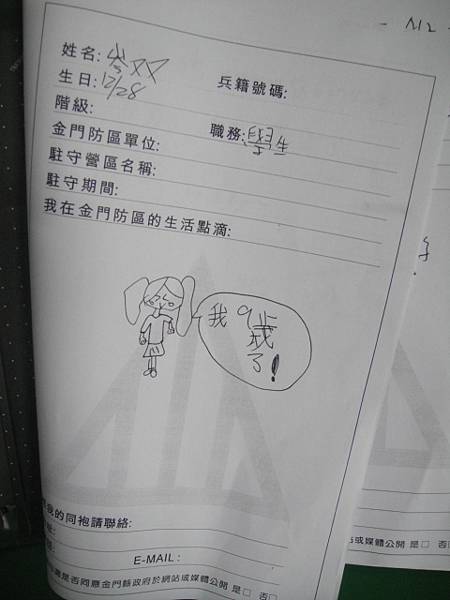 姓名: 岑双
生日: 12/28
兵籍號碼:
階級:
職務: 學生
金門防區單位:
駐守營區名稱:
駐守期間:
我在金門防區的生活點滴:
我 9歲
了!
我的同袍請聯絡:
E-MAIL :
是否同意金門縣政府於網站或媒體公開 是□ 否□
站或媒體公開 是□ 否□